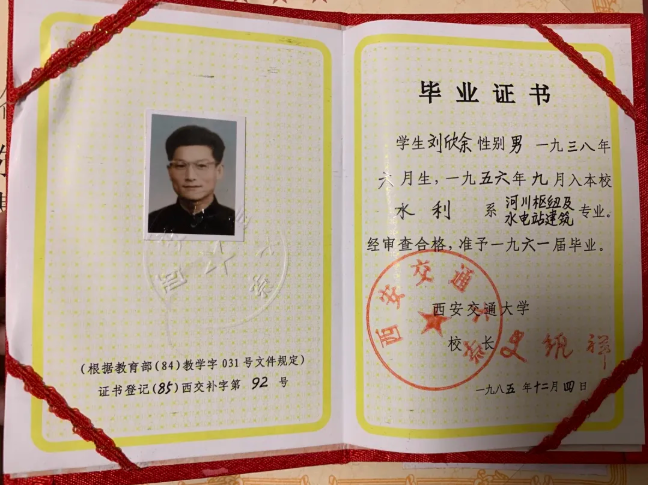 (根据教育部(84)教学字031号文件规定)
证书登记(85)西交补字第 92 号
毕业证书
学生刘欣余性别男 一九三八年
六月生，一九五六年九月入本校
水利 系 河川枢纽及
水电站建筑 专业。
经审查合格，准予一九六一届毕业。
西安交通大学
西安交通大学
校 长
一九八五年十二月四日